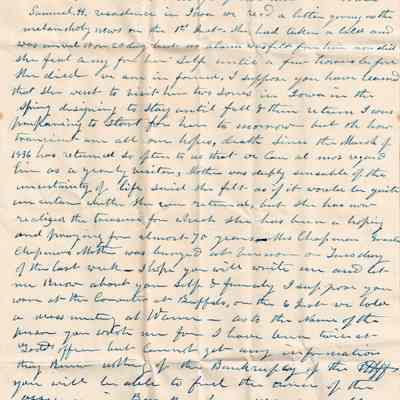 Samuel H. residence in Iowa we rec'd a letter giving us the
melancholy news on the 1st Inst. She had taken a cold and
was unwell some 20 days but no alarm was felt for her nor did
she feel any for her Self until a few hours before
She died we are in formed, I suppose you have learned
that She went to visit her two Sones in Iowa in the
Spring designing to Stay until fall & then return I was
preparing to Start for her to morrow but oh how
transient are all our hopes, death Since the March of
1836 has returned So often to us that we can al most regard
him as a yearly visitor, Mother was deeply sensible of the
uncertainty of life said she felt as if it would be quite
un certain wether She ever returned, but She has now
realized the treasure for which She has been a hoping
and praying for almost 70 years — Mrs Chapman
Chapmans Mother was buryed at on Tuesday
of the last week — I hope you will write me and let
me Know about your Self & family I Sup pose you
were at the Convention at Buffalo, on the 6 Inst we hold
a mass meeting at Warren — as to the name of the
person you wrote me for I have been twice at
office but cannot get any information
they Know nothing of the Bankruptcy of the
you will be able to find the name of the